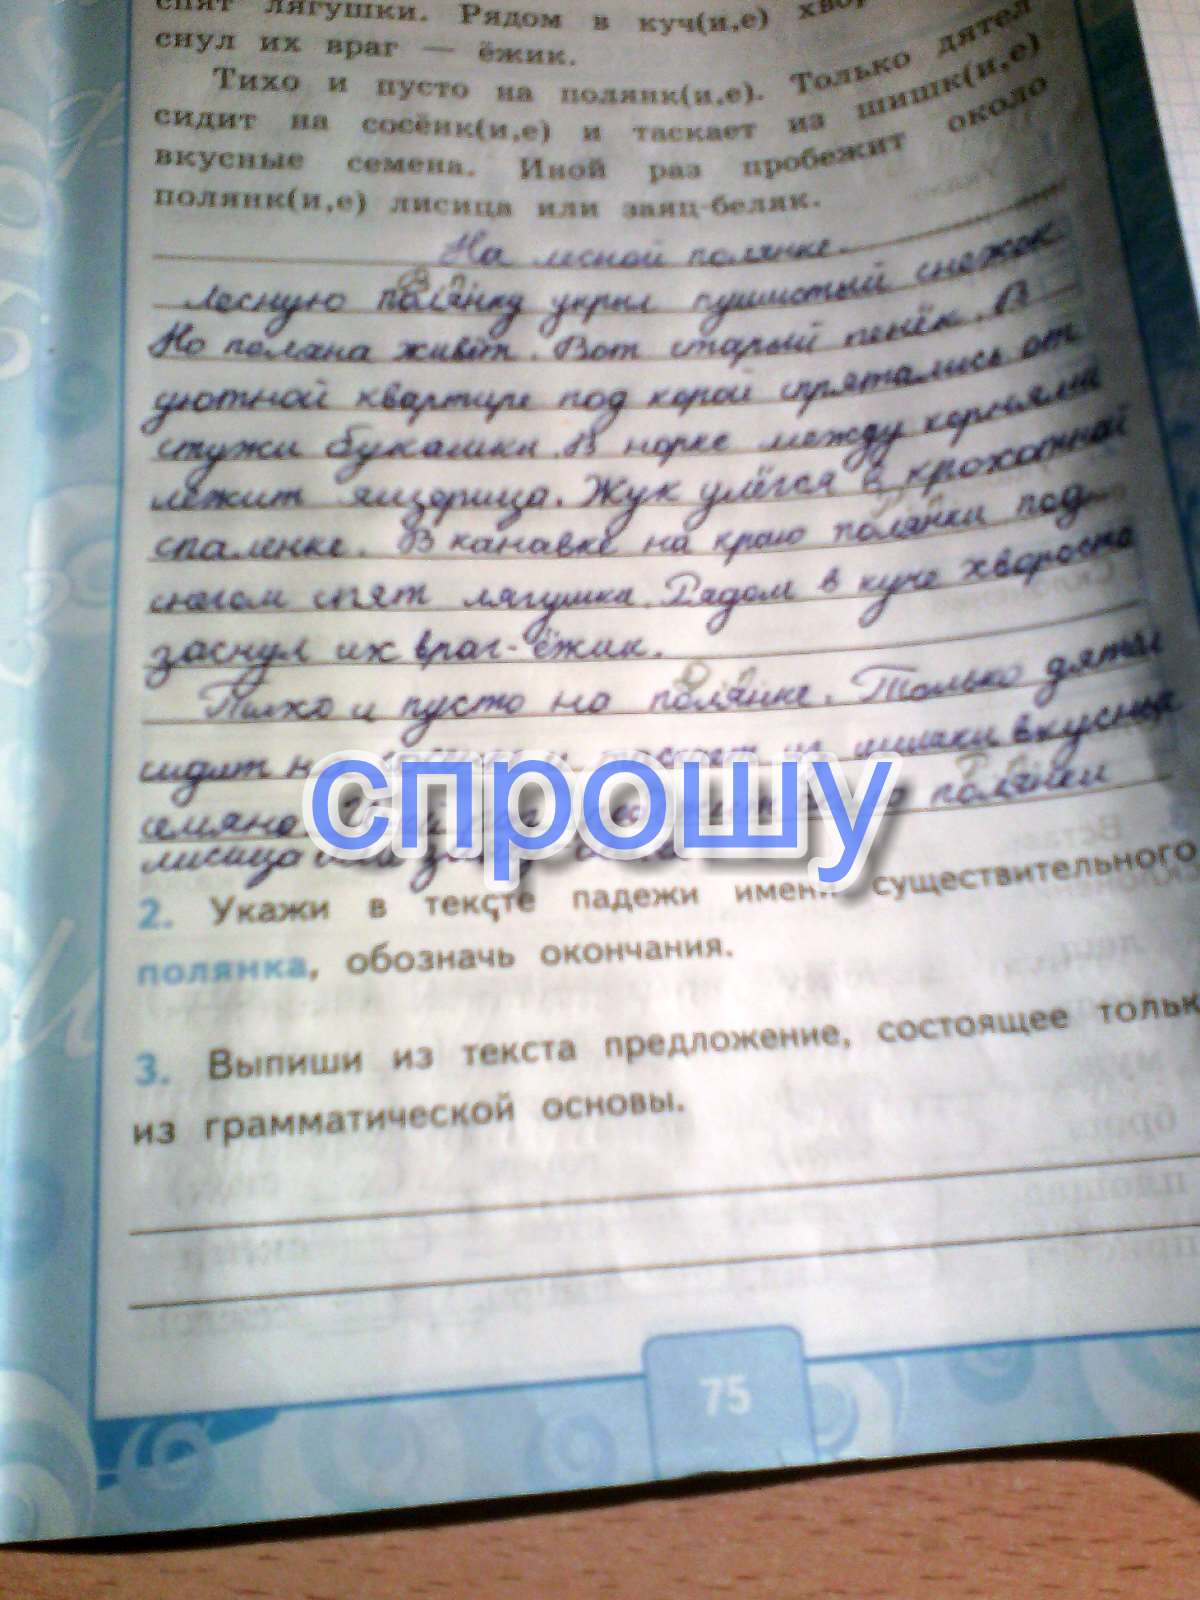 спят лягушки. Рядом в куч(и,е)
снул их враг — ёжик.
Тихо и пусто на полянк(и,е). Только дятел
сидит на сосёнк(и,е) и таскает из шишк(и,е)
вкусные семена. Иной раз пробежит около
полянк(и,е) лисица или заяц-беляк.
На лесной полянке.
Лесную полянку укрыл пушистый снежок
Но поляна живёт. Вот старый пенёк. В
уютной квартире под корой спрятались от
стужи букашки. В норке между корнями
лежит ящерица. Жук улёгся в крохотной
спаленке. В канавке на краю полянки под
снегом спят лягушки. Рядом в куче хвороста
заснул их враг-ёжик.
Тихо и пусто на полянке. Только дятел
сидит и таскает из шишки вкусные
семяна. полянки
лисица
спрошу
2. Укажи в тексте падежи имени существительного
полянка, обозначь окончания.
3. Выпиши из текста предложение, состоящее тольк
из грамматической основы.
75